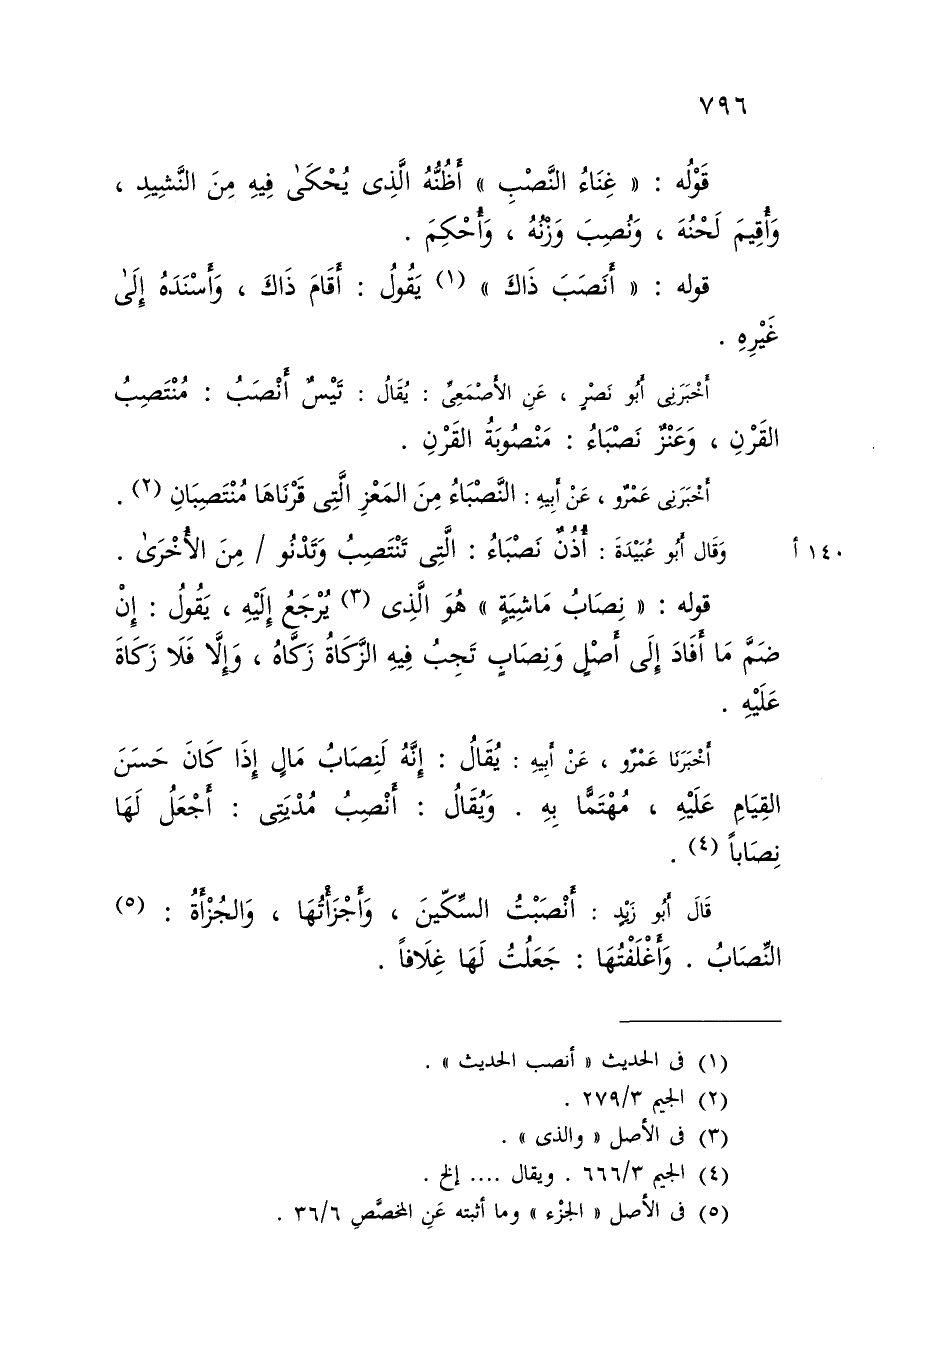 ٧٩٦
قَوْلُه : « غِنَاءُ النَّصْبِ » أَظُنُّهُ الَّذِى يُحْكَىٰ فِيهِ مِنَ النَّشِيدِ ،
وَأُقِيمَ لَحْنُهَ ، وَنُصِبَ وَزْنُهُ ، وَأُحْكِمَ .
قوله : « أَنَصَبَ ذَاكَ » (١) يَقُولُ : أَقَامَ ذَاكَ ، وَأَسْنَدَهُ إِلَىٰ
غَيْرِهِ .
أَخْبَرَنِى أَبُو نَصْرٍ ، عَنِ الأَصْمَعِىِّ : يُقَالُ : تَيْسٌ أَنْصَبُ : مُنْتَصِبُ
القَرْنِ ، وَعَنْزٌ نَصْبَاءُ : مَنْصُوبَةُ القَرْنِ .
أَخْبَرَنِى عَمْرٌو ، عَنْ أَبِيهِ : النَّصْبَاءُ مِنَ المَعْزِ الَّتِى قَرْنَاهَا مُنْتَصِبَانِ (٢) .
١٤٠ أ وَقَال أَبُو عُبَيْدَةَ : أُذُنٌ نَصْبَاءُ : الَّتِى تَنْتَصِبُ وَتَدْنُو / مِنَ الأُخْرَىٰ .
قوله : « نِصَابُ مَاشِيَةٍ » هُوَ الَّذِى (٣) يُرْجَعُ إِلَيْهِ ، يَقُولُ : إِنْ
ضَمَّ مَا أَفَادَ إِلَى أَصْلٍ وَنِصَابٍ تَجِبُ فِيهِ الزَّكَاةُ زَكَّاهُ ، وَإِلَّا فَلَا زَكَاةَ
عَلَيْهِ .
أَخْبَرَنَا عَمْرٌو ، عَنْ أَبِيهِ : يُقَالُ : إِنَّهُ لَنِصَابُ مَالٍ إِذَا كَانَ حَسَنَ
القِيَامِ عَلَيْهِ ، مُهْتَمًّا بِهِ . وَيُقَالُ : أَنْصِبُ مُدْيَتِى : أَجْعَلُ لَهَا
نِصَاباً (٤) .
قَالَ أَبُو زَيْدٍ : أَنْصَبْتُ السِّكِّينَ ، وَأَجْزَأْتُهَا ، وَالجُزْأَةُ : (٥)
النِّصَابُ . وَأَغْلَفْتُهَا : جَعَلْتُ لَهَا غِلَافاً .
(١) فى الحديث « أنصب الحديث » .
(٢) الجيم ٢٧٩/٣ .
(٣) فى الأصل « والذى » .
(٤) الجيم ٦٦٦/٣ . ويقال .... إلخ .
(٥) فى الأصل « الجزْء » وما أثبته عَنِ المخصَّصِ ٣٦/٦ .